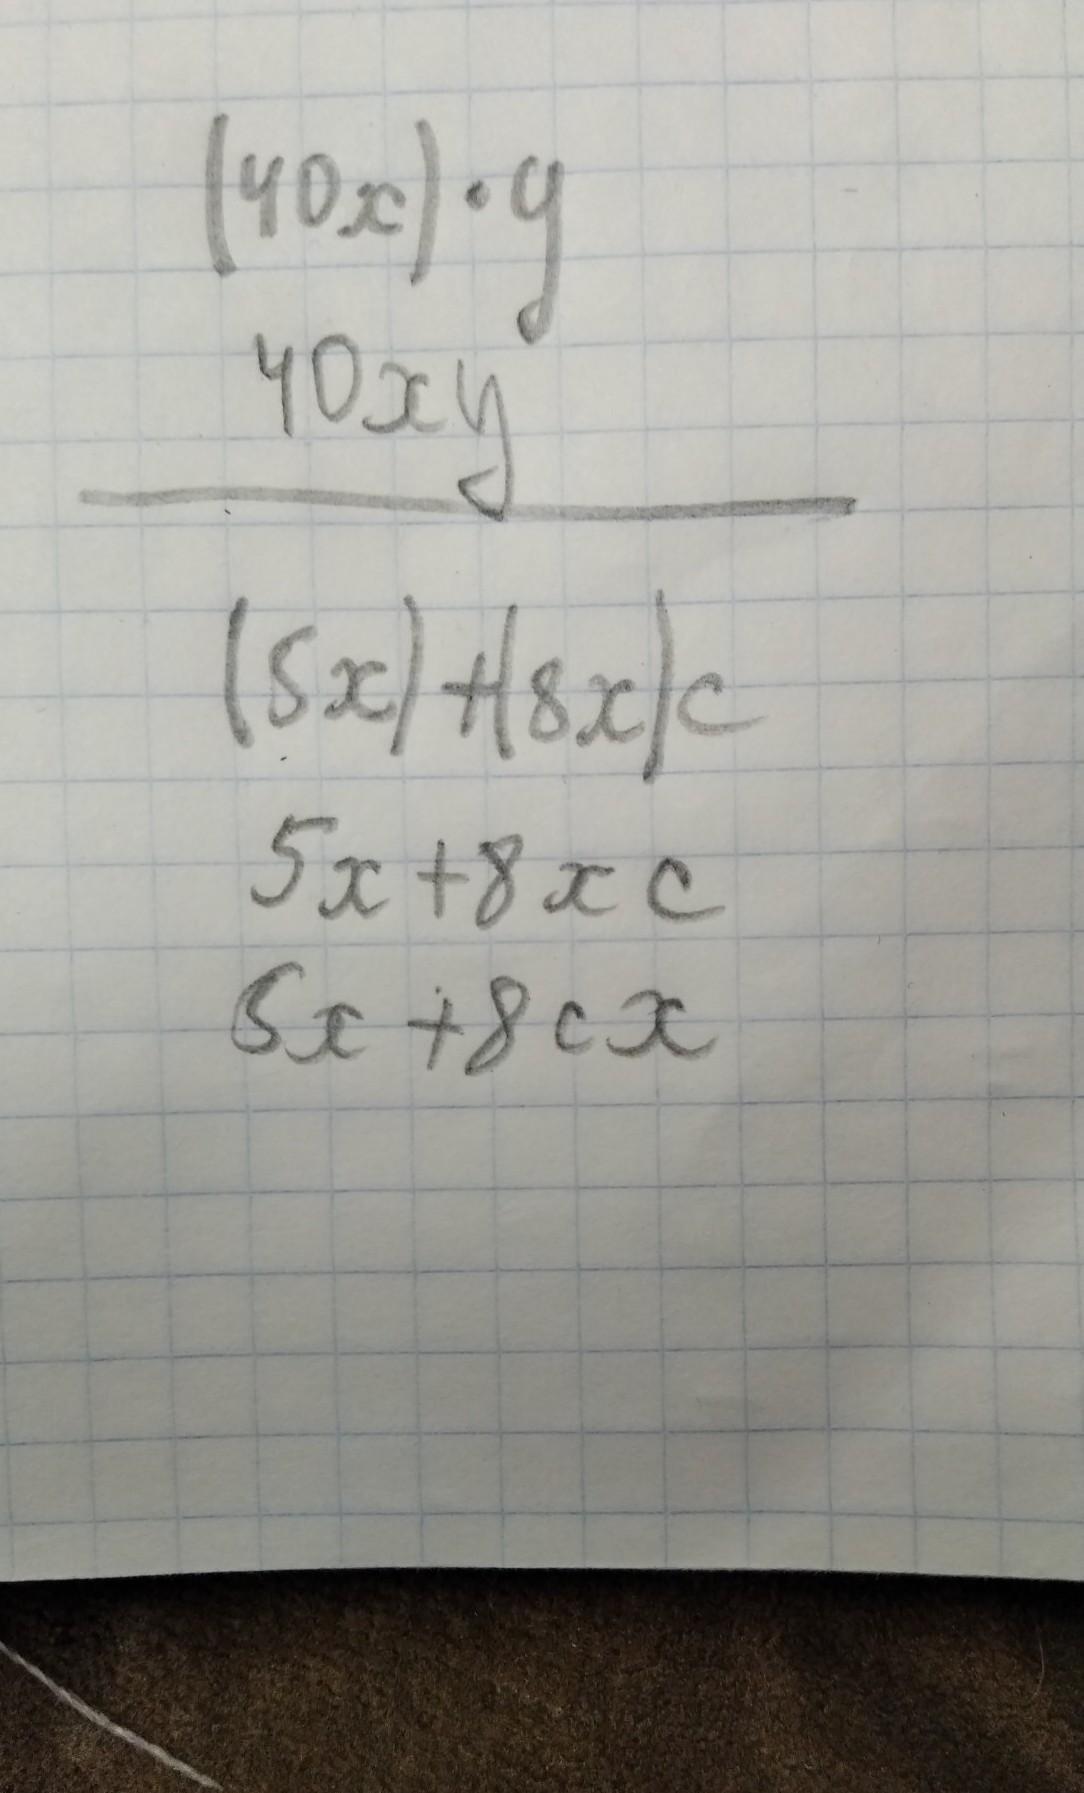 (40x)·y
40xy
(5x)+(8x)c
5x+8xc
5x+8cx